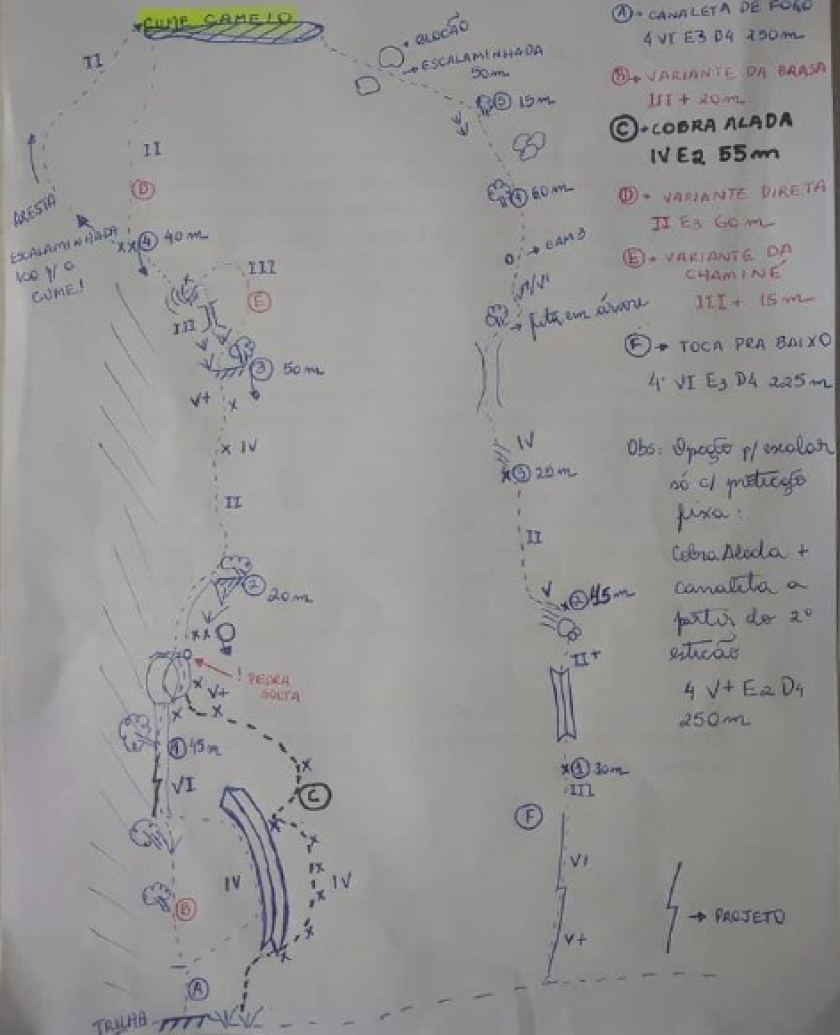 CUME CAMELO
II
BLOCÃO
ESCALAMINHADA
50m
5 15m
II
D
ARESTA
ESCALAMINHADA
100 p/ o
CUME!
xx 4 40m
III
E
III
3 50m
V+ x
x IV
II
2 20m
xx
! PEDRA
SOLTA
x V+
x x
1 45m
VI
x
C
x
IV
IV
B
A
TRILHA
4 60m
CAM 3
V/VI
fita em árvore
IV
x 3 25m
II
V
x 2 45m
II+
x 1 30m
III
F
VI
V+
→ PROJETO
A → CANALETA DE FOGO
4 VI E3 D4 250m
B → VARIANTE DA BRASA
III + 20m
C → COBRA ALADA
IV E2 55m
D → VARIANTE DIRETA
II E3 60m
E → VARIANTE DA
CHAMINÉ
III + 15m
F → TOCA PRA BAIXO
4º VI E3 D4 225m
Obs: Opção p/ escalar
só c/ proteção
fixa:
Cobra Alada +
canaleta a
partir do 2º
esticão
4 V+ E2 D4
250m